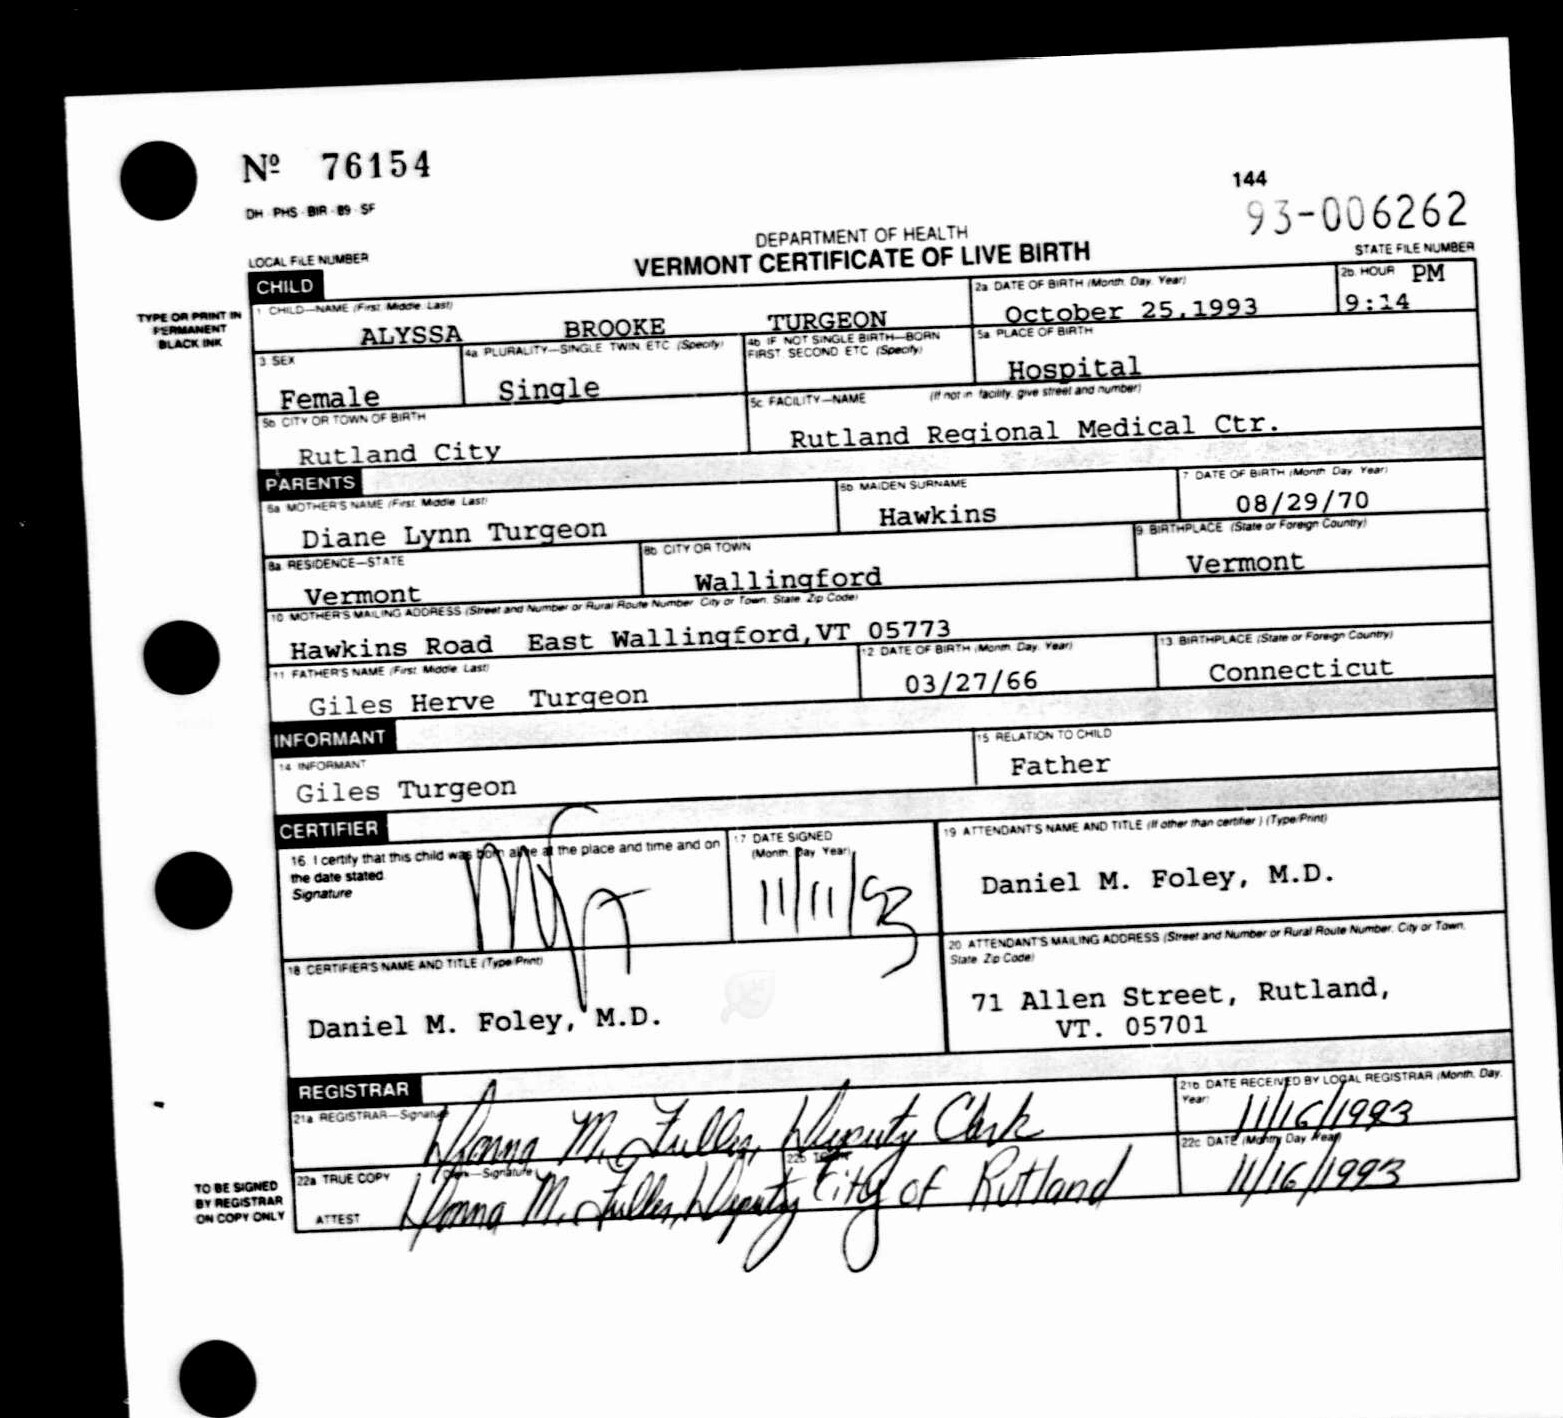 Nº 76154
144
DH - PHS - BIR - 89 - SF
93-006262
DEPARTMENT OF HEALTH
LOCAL FILE NUMBER
VERMONT CERTIFICATE OF LIVE BIRTH
STATE FILE NUMBER
CHILD
TYPE OR PRINT IN
PERMANENT
BLACK INK
1 CHILD—NAME (First, Middle, Last)
ALYSSA BROOKE TURGEON
2a DATE OF BIRTH (Month, Day, Year)
October 25,1993
2b. HOUR PM
9:14
3 SEX
Female
4a PLURALITY—SINGLE, TWIN, ETC. (Specify)
Single
4b IF NOT SINGLE BIRTH—BORN
FIRST, SECOND, ETC. (Specify)
5a PLACE OF BIRTH
Hospital
5b CITY OR TOWN OF BIRTH
Rutland City
5c FACILITY—NAME (If not in facility, give street and number)
Rutland Regional Medical Ctr.
PARENTS
6a MOTHER'S NAME (First, Middle, Last)
Diane Lynn Turgeon
6b MAIDEN SURNAME
Hawkins
7 DATE OF BIRTH (Month, Day, Year)
08/29/70
8a RESIDENCE—STATE
Vermont
8b CITY OR TOWN
Wallingford
9 BIRTHPLACE (State or Foreign Country)
Vermont
10 MOTHER'S MAILING ADDRESS (Street and Number or Rural Route Number, City or Town, State, Zip Code)
Hawkins Road East Wallingford,VT 05773
11 FATHER'S NAME (First, Middle, Last)
Giles Herve Turgeon
12 DATE OF BIRTH (Month, Day, Year)
03/27/66
13 BIRTHPLACE (State or Foreign Country)
Connecticut
INFORMANT
14 INFORMANT
Giles Turgeon
15 RELATION TO CHILD
Father
CERTIFIER
16. I certify that this child was born alive at the place and time and on
the date stated
Signature
17 DATE SIGNED
(Month, Day, Year)
11/11/93
18 CERTIFIER'S NAME AND TITLE (Type/Print)
Daniel M. Foley, M.D.
19 ATTENDANT'S NAME AND TITLE (If other than certifier.) (Type/Print)
Daniel M. Foley, M.D.
20 ATTENDANT'S MAILING ADDRESS (Street and Number or Rural Route Number, City or Town,
State, Zip Code)
71 Allen Street, Rutland,
VT. 05701
REGISTRAR
21a REGISTRAR—Signature
Donna M. Fuller, Deputy Clerk
21b DATE RECEIVED BY LOCAL REGISTRAR (Month, Day,
Year)
11/16/1993
TO BE SIGNED
BY REGISTRAR
ON COPY ONLY
22a TRUE COPY
ATTEST
Clerk—Signature
Donna M. Fuller, Deputy
City of Rutland
22c DATE (Month, Day, Year)
11/16/1993